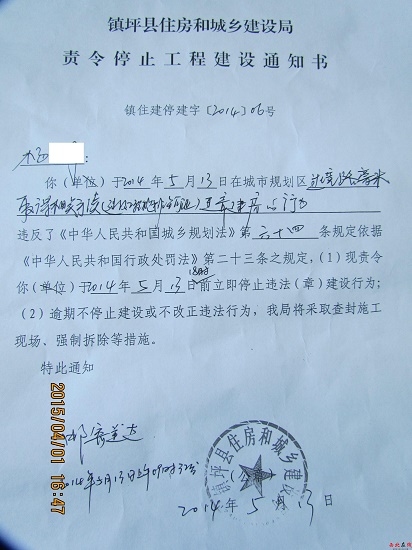 镇坪县住房和城乡建设局
责令停止工程建设通知书
镇住建停建字〔2014〕06号
:
你（单位）于2014年5月13日在城市规划区
的行为
违反了《中华人民共和国城乡规划法》第六十四条规定依据
《中华人民共和国行政处罚法》第二十三条之规定,（1）现责令
18时
你（单位）于2014年5月13日前立即停止违法（章）建设行为;
（2）逾期不停止建设或不改正违法行为,我局将采取查封施工
现场、强制拆除等措施。
特此通知
2014年5月13日
镇坪县住房和城乡建设
2014年5月13日
2015/04/01 16:47